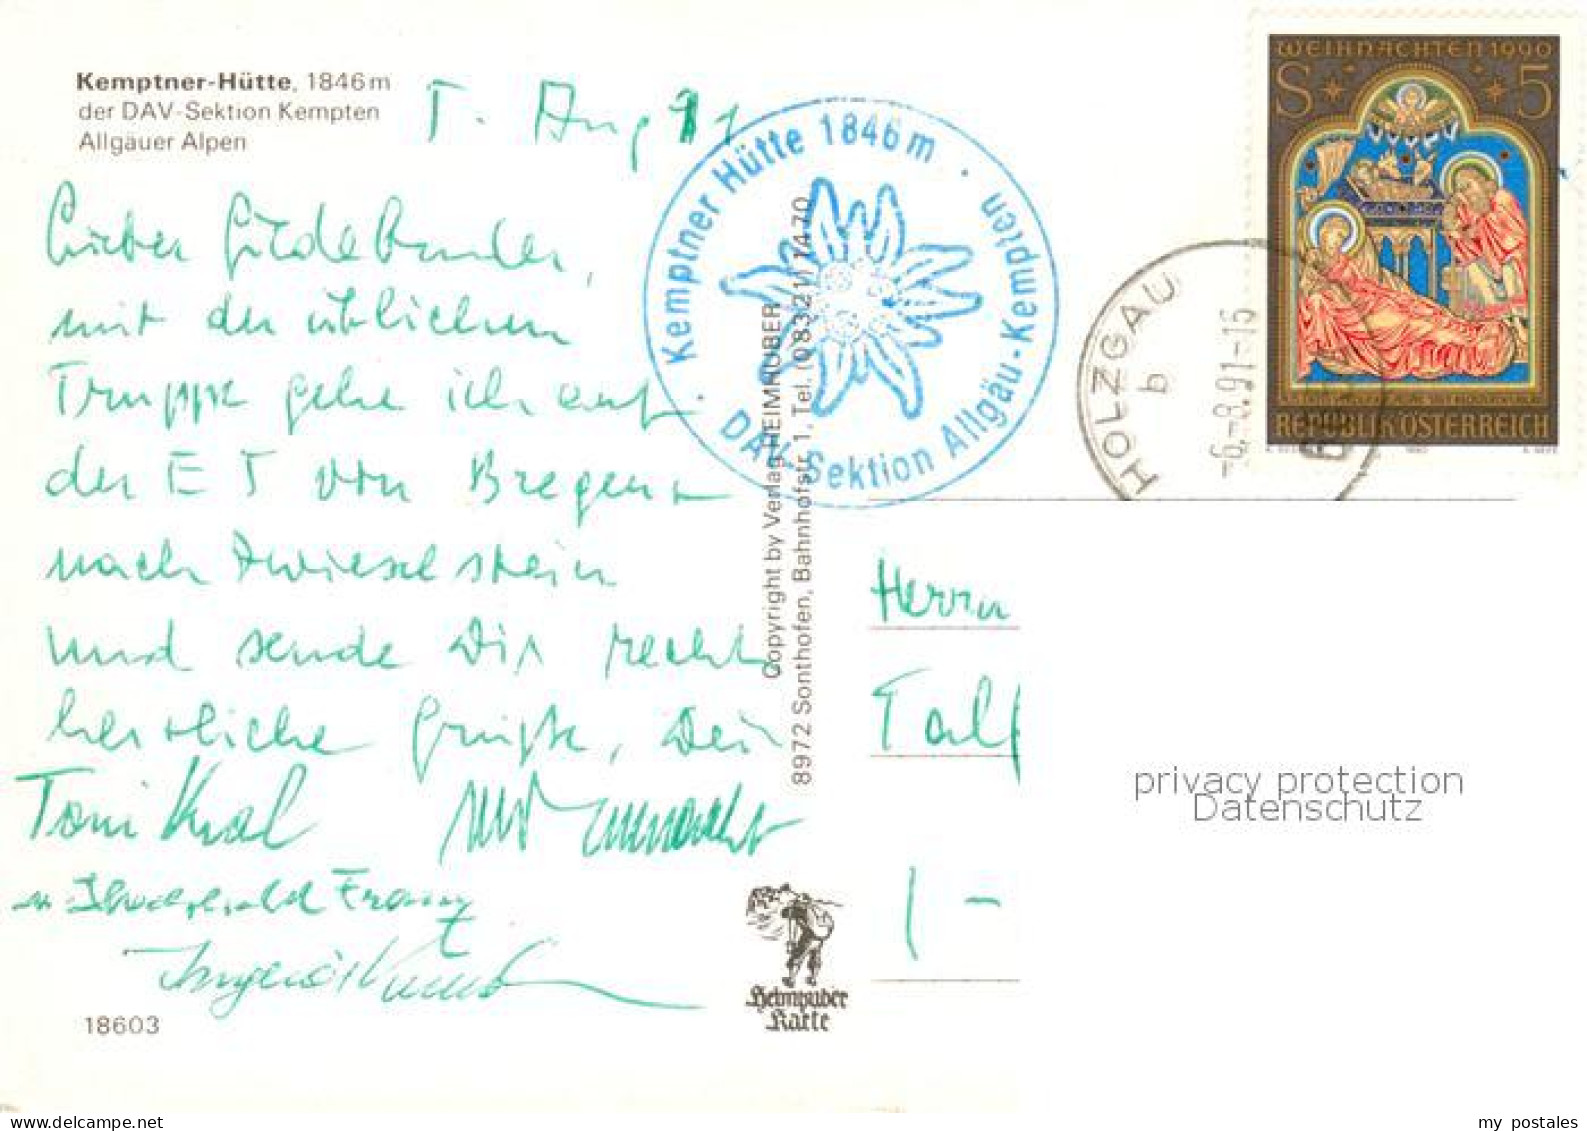 Kemptner-Hütte, 1846 m
der DAV-Sektion Kempten
Allgäuer Alpen
5. Aug 91
Lieber Gildebruder,
mit der üblichen
Truppe gehe ich auf
den E 5 von Bregenz
nach Zwieselstein
und sende Dir recht
herzliche Grüße, Dein
Toni Kral
Franz
18603
Kemptner Hütte 1846 m · DAV-Sektion Allgäu-Kempten ·
Copyright by Verlag HEIMHUBER
8972 Sonthofen, Bahnhofstr. 1, Tel. (08321) 1470
Heimhuber
Karte
WEIHNACHTEN 1990
S 5
REPUBLIK ÖSTERREICH
HOLZGAU
b
-6.-8.91-15
Herrn
1-
privacy protection
Datenschutz
my postales